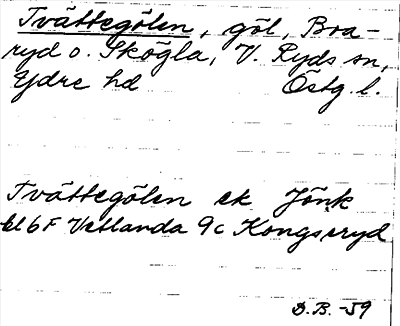 Tvättegölen, göl, Boa-
ryd o. Skögla, V. Ryds sn,
Ydre hd Östg. l.
Tvättegölen ek Jönk
bl 6 F Vetlanda 9c Kongseryd
D.B. -59